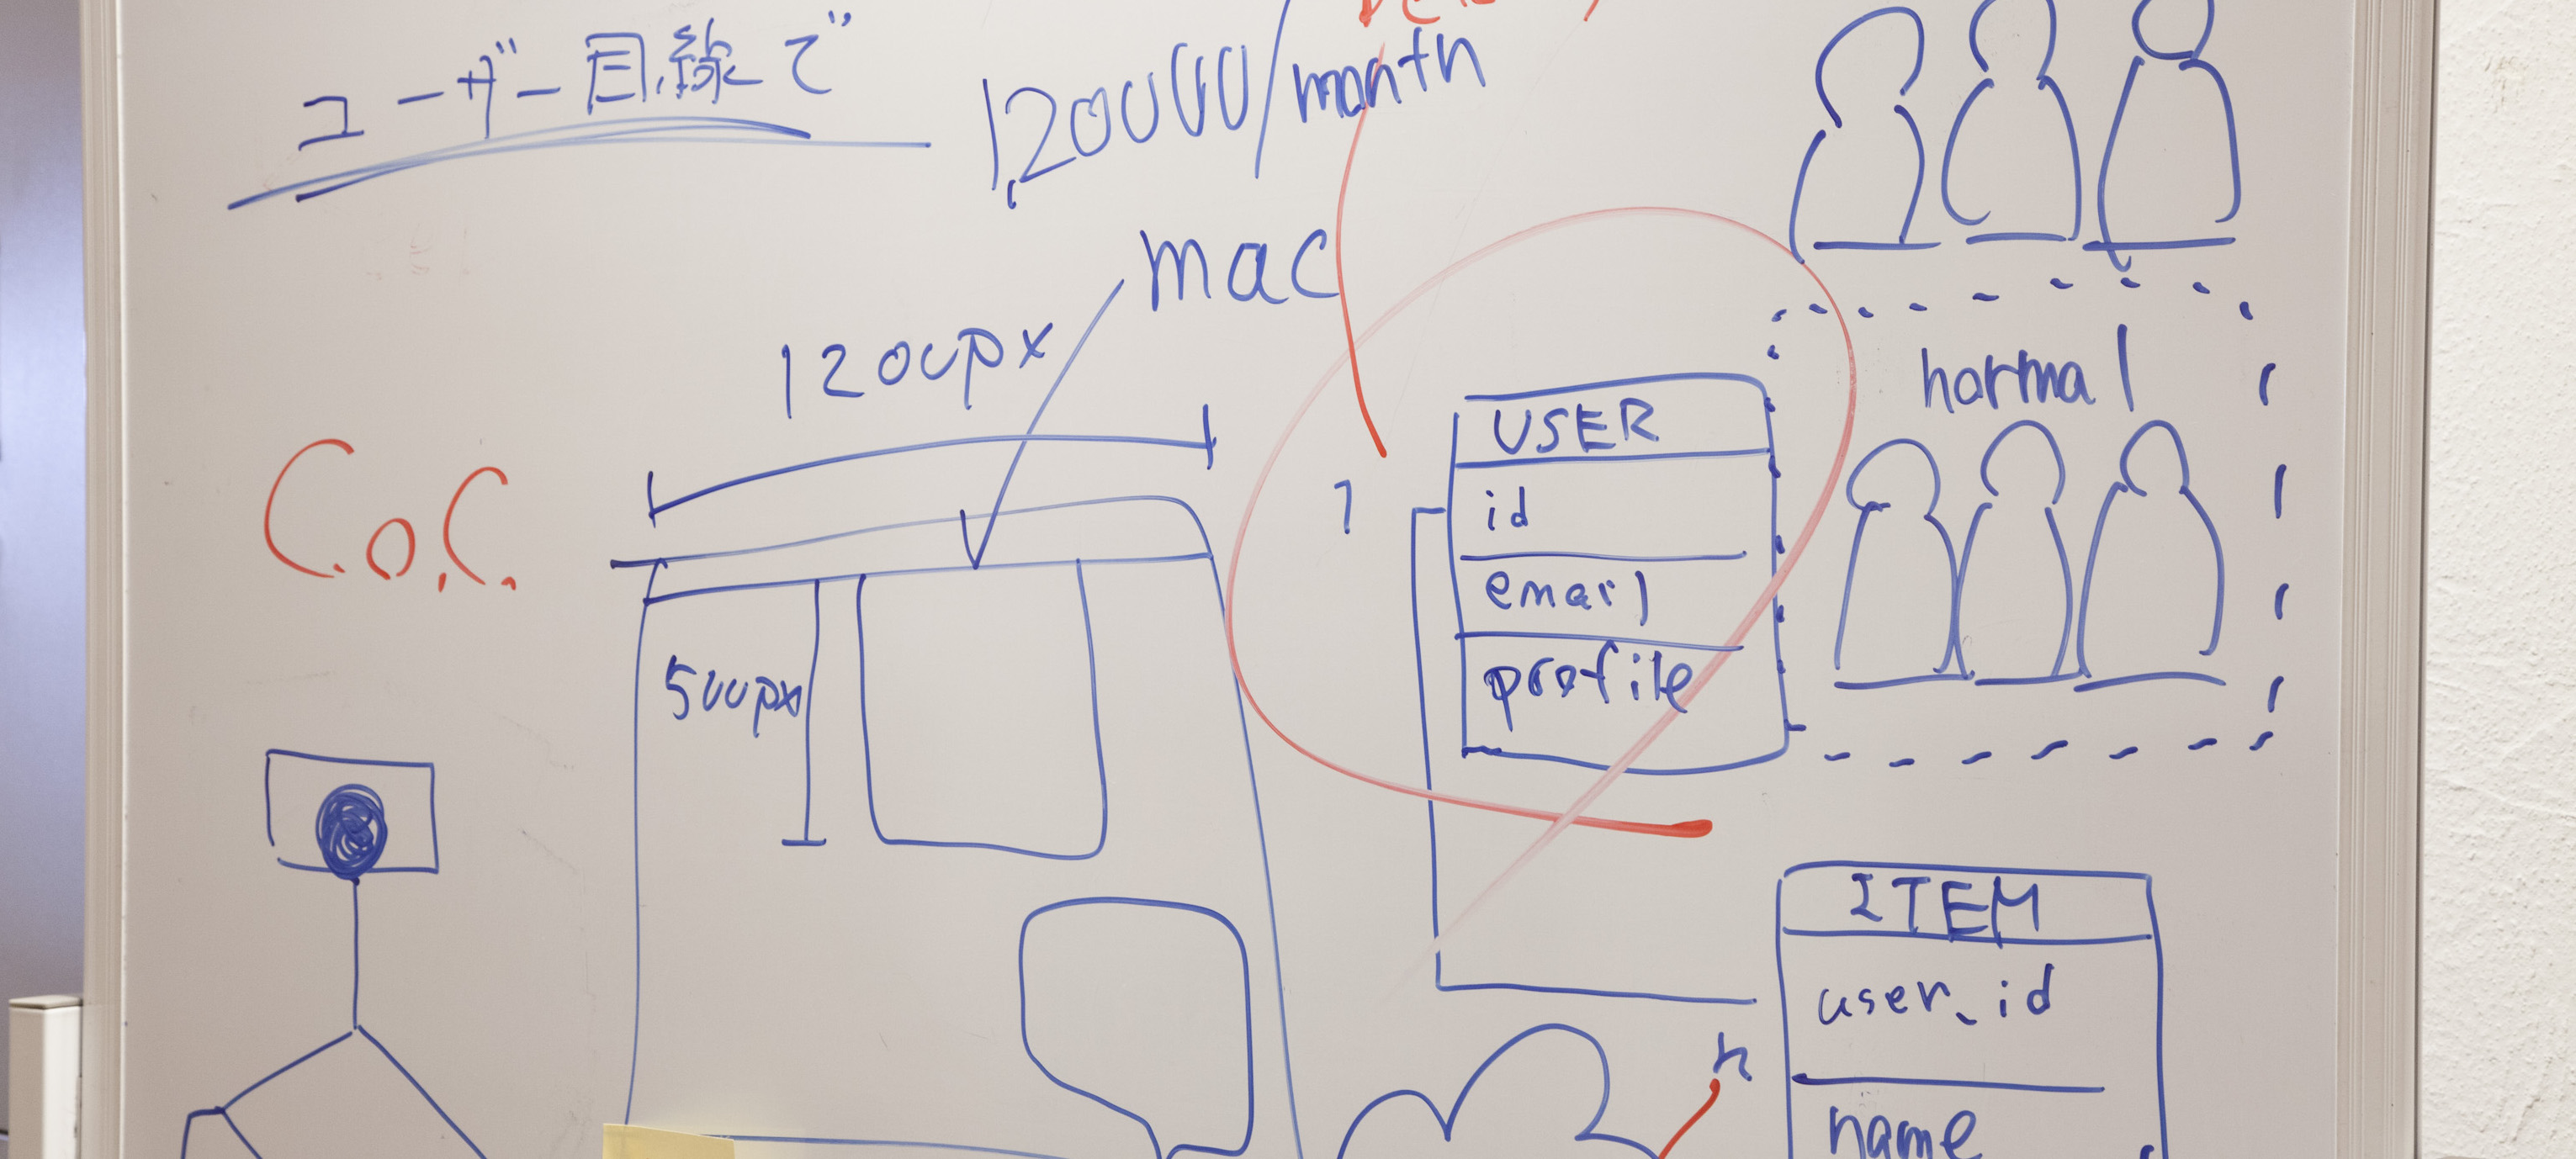 ユーザー目線で
1,20000/month
mac
1200px
C.o.C.
500px
1
USER
id
email
profile
normal
n
ITEM
user_id
name